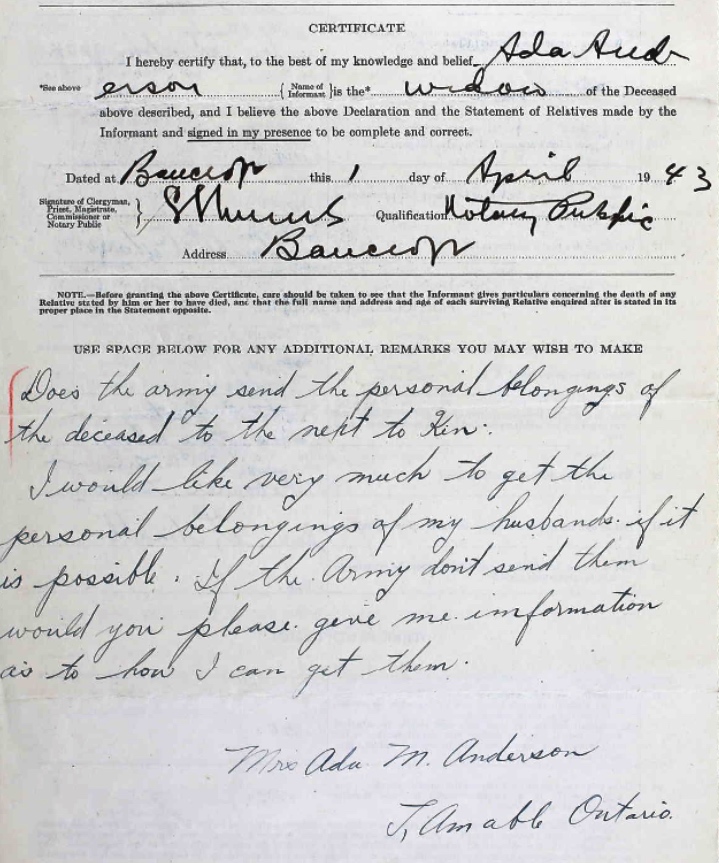 CERTIFICATE
I hereby certify that, to the best of my knowledge and belief Ada And
*See above erson { Name of Informant } is the* widow of the Deceased
above described, and I believe the above Declaration and the Statement of Relatives made by the
Informant and signed in my presence to be complete and correct.
Dated at Bancroft this 1 day of April 1943
Signature of Clergyman, Priest, Magistrate, Commissioner or Notary Public } Qualification Notary Public
Address Bancroft
NOTE.—Before granting the above Certificate, care should be taken to see that the Informant gives particulars concerning the death of any
Relative stated by him or her to have died, and that the full name and address and age of each surviving Relative enquired after is stated in its
proper place in the Statement opposite.
USE SPACE BELOW FOR ANY ADDITIONAL REMARKS YOU MAY WISH TO MAKE
Does the army send the personal belongings of
the deceased to the next to Kin.
I would like very much to get the
personal belongings of my husbands. if it
is possible. If the Army don't send them
would you please. give me. imformation
as to how I can get them.
Mrs Ada M. Anderson
Amable Ontario.